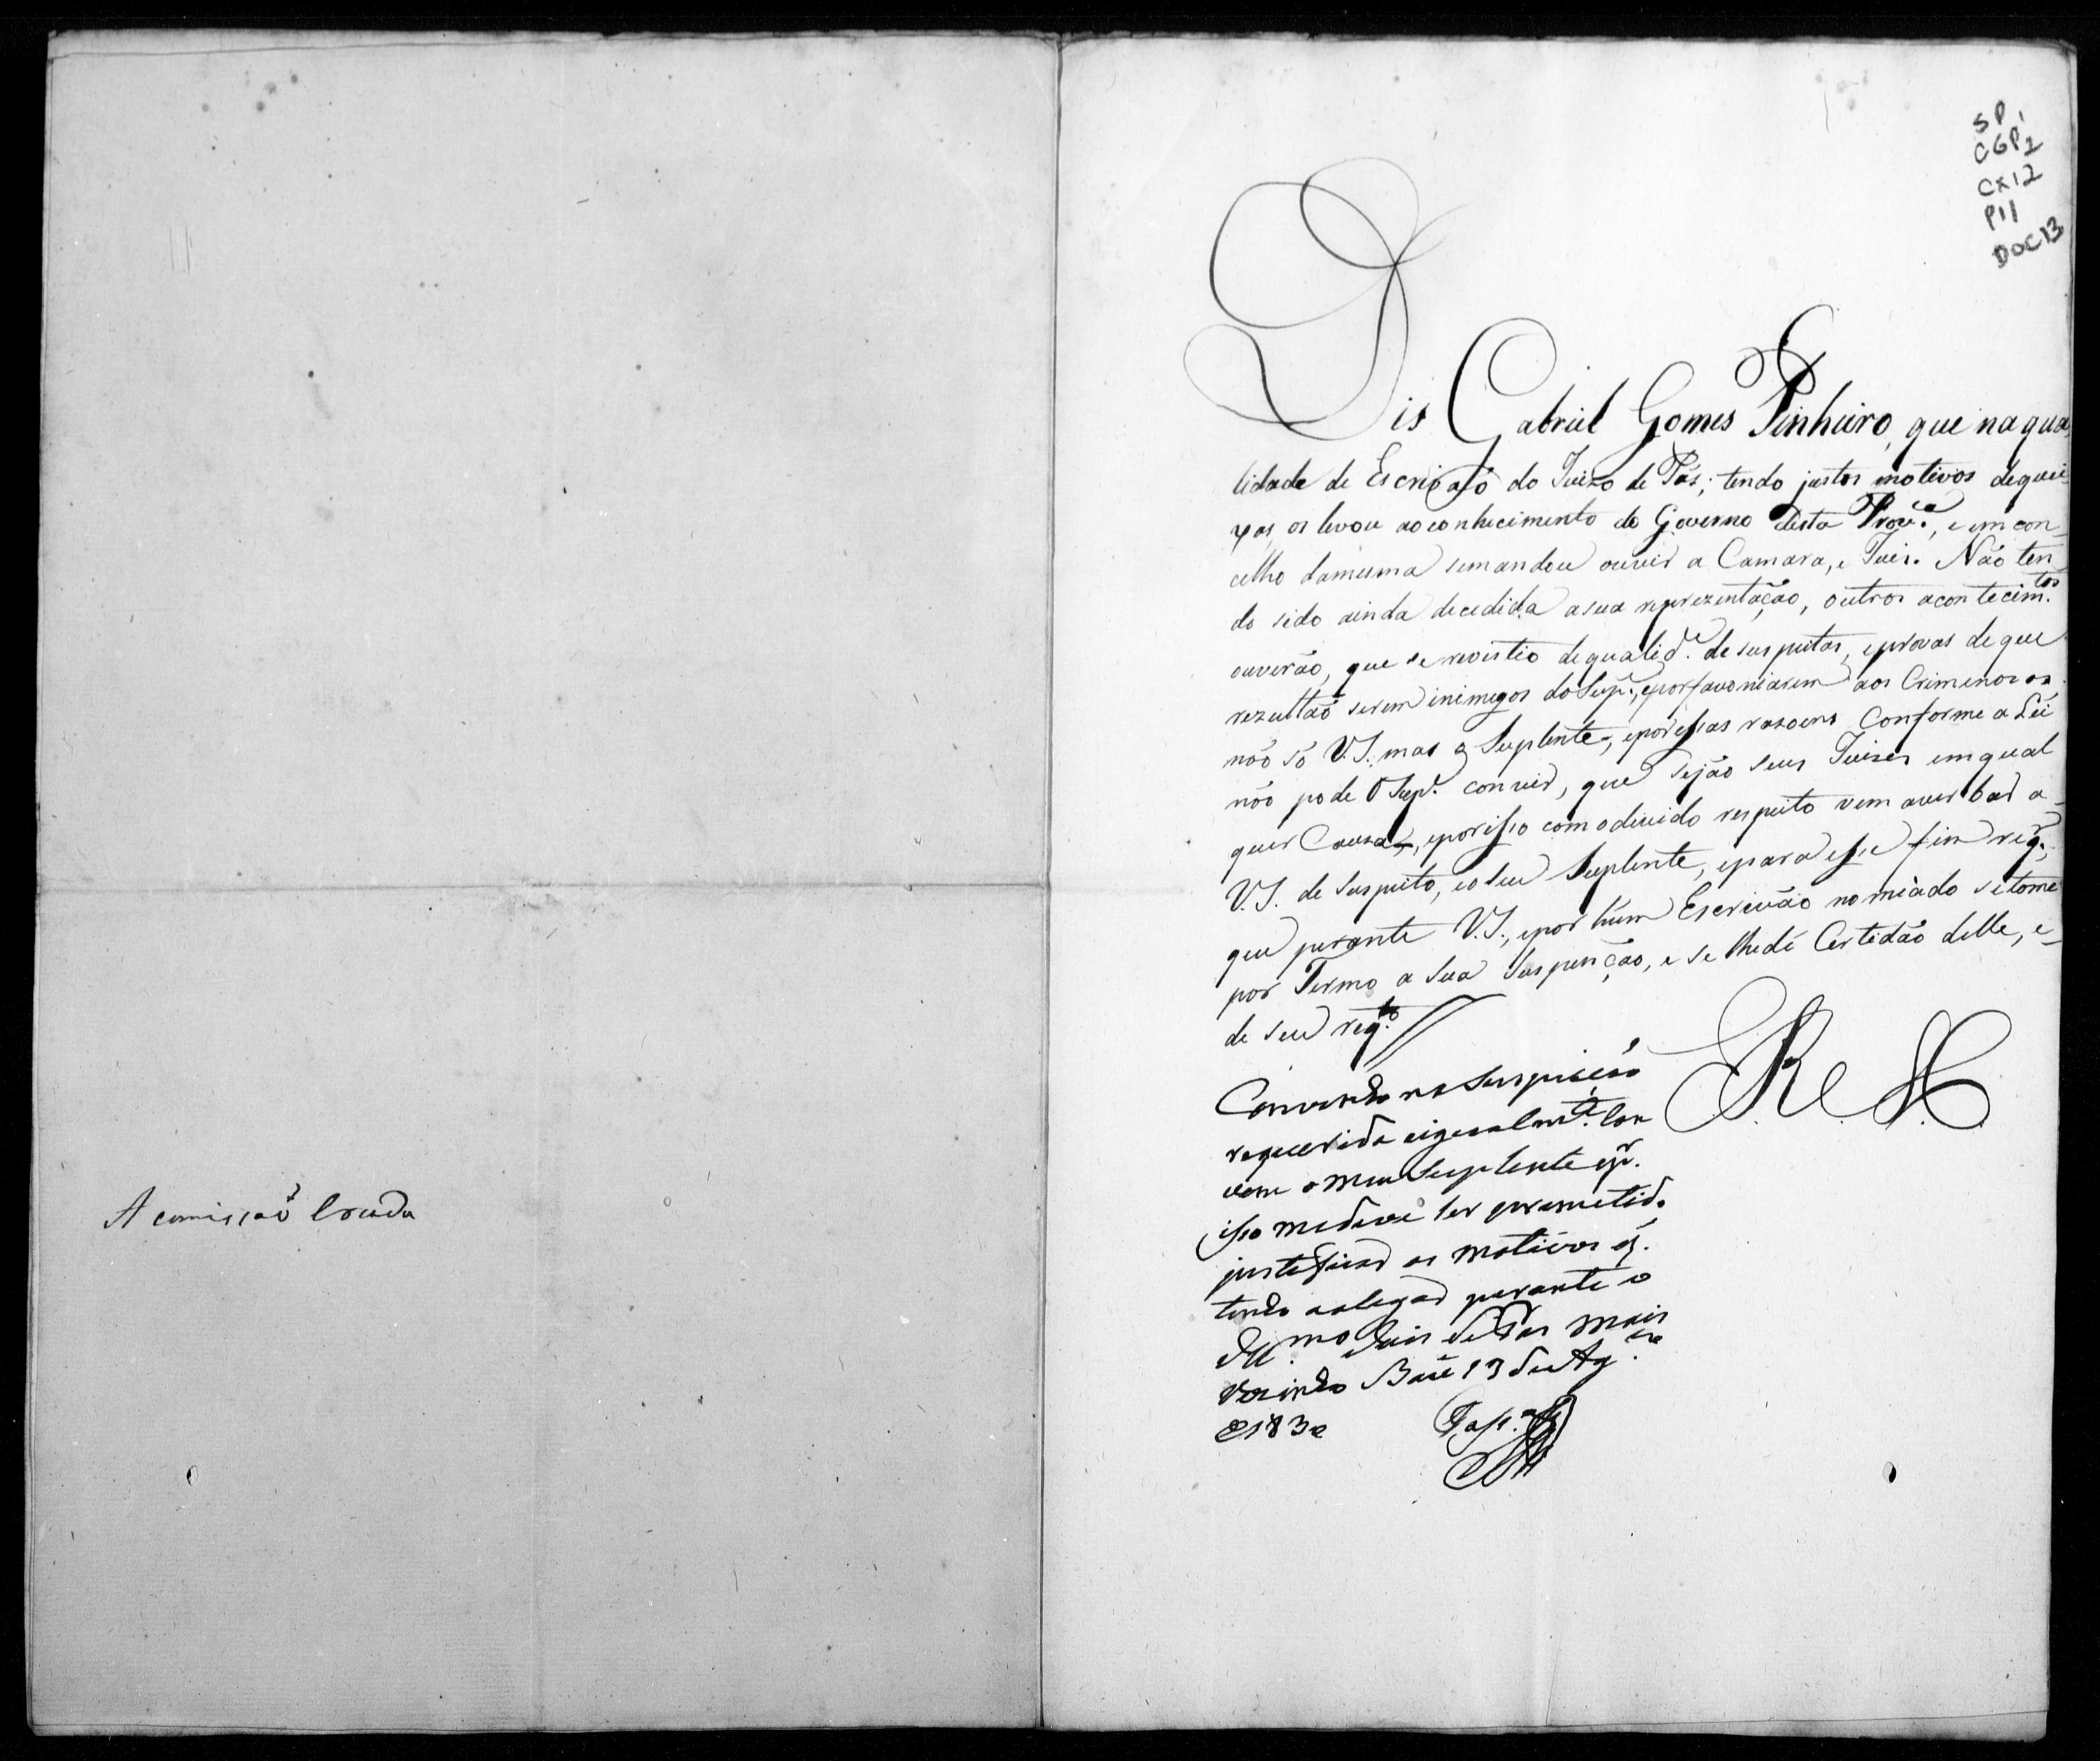 A comissaõ Creada
SP1
CGP1
CX12
P11
DOC13
Dis Gabriel Gomes Pinheiro, que na qua
lidade de Escrivaõ do Juizo de Pás; tendo justos motivos de quei
xas, os levou ao conhecimento do Governo desta Prov.ª, e em con
celho da mesma se mandou ouvir a Camara, e Juis. Não ten
do sido ainda decedida a sua reprezentação, outros acontecim.tos
ouverão, que se revistio de qualid.e de suspeitas, e provas de que
rezultaõ serem inimigos do Sup.e, e por favoniarem aos Criminosos
não só V.S. mas o Suplente, e por essas rasoens Conforme a Lei
não pode O Sup.e convir, que sejão seus Juises em qual
quer Causa, e por isso com o divido respeito vem averbar a
V.S. de Suspeito, e o seu Suplente, e para esse fim req.r
que perante V.S., e por hum Escrivão nomeado se tome
por Termo a Sua Suspenção, e se lhe dê Certidão delle, e
de seu req.to
E R. M.
Convindo na Suspeicão
requerida e igualm.te con
vem o meu Suplente e p.r
isso me deve ser prometido
justeficar os motivos q.
tendo a alegar perante o
Ill.mo Juis de Pas mais
vezinho 13 de Ag.to